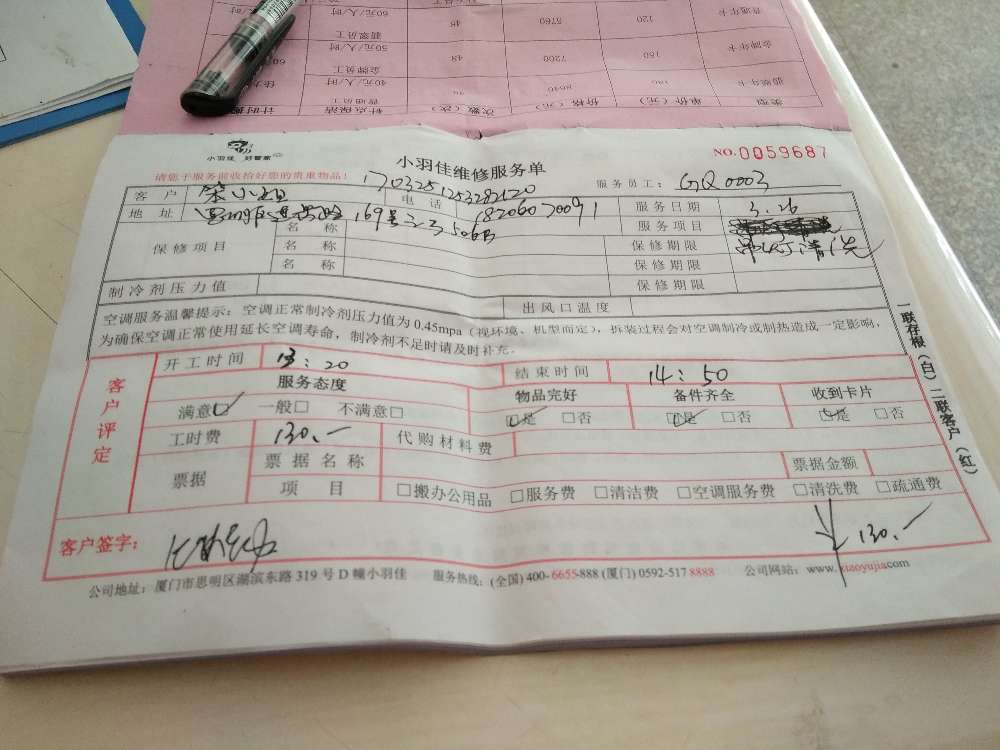 60元/人/时
48
5760
120
普通年卡
翡翠员工
50元/人/时
48
7200
150
金牌年卡
金牌员工
40元/人/时
8640
普通员工
计时
针点保洁
次数(次)
价格(元)
单价(元)
类型
小羽佳 好管家
小羽佳维修服务单
NO.0059687
请您于服务前收拾好您的贵重物品!
1703251253282120
服务员工: GQ0003
客户
小姐
电话
18206070091
服务日期
3.26
地址
169号
506B
服务项目
清洗
保修项目
名称
保修期限
名称
保修期限
名称
保修期限
制冷剂压力值
出风口温度
空调服务温馨提示:空调正常制冷剂压力值为0.45mpa(视环境、机型而定),拆装过程会对空调制冷或制热造成一定影响,
为确保空调正常使用延长空调寿命,制冷剂不足时请及时补充。
一联存根(白)二联客户(红)
客户评定
开工时间
13:20
结束时间
14:50
服务态度
物品完好
备件齐全
收到卡片
满意☑ 一般□ 不满意□
☑是 □否
☑是 □否
☑是 □否
工时费
130.-
代购材料费
票据
票据名称
票据金额
项目
□搬办公用品 □服务费 □清洁费 □空调服务费 □清洗费 □疏通费
客户签字:
130.-
公司地址:厦门市思明区湖滨东路319号D幢小羽佳 服务热线:(全国)400-6655-888(厦门)0592-5178888 公司网站:www.xiaoyujia.com